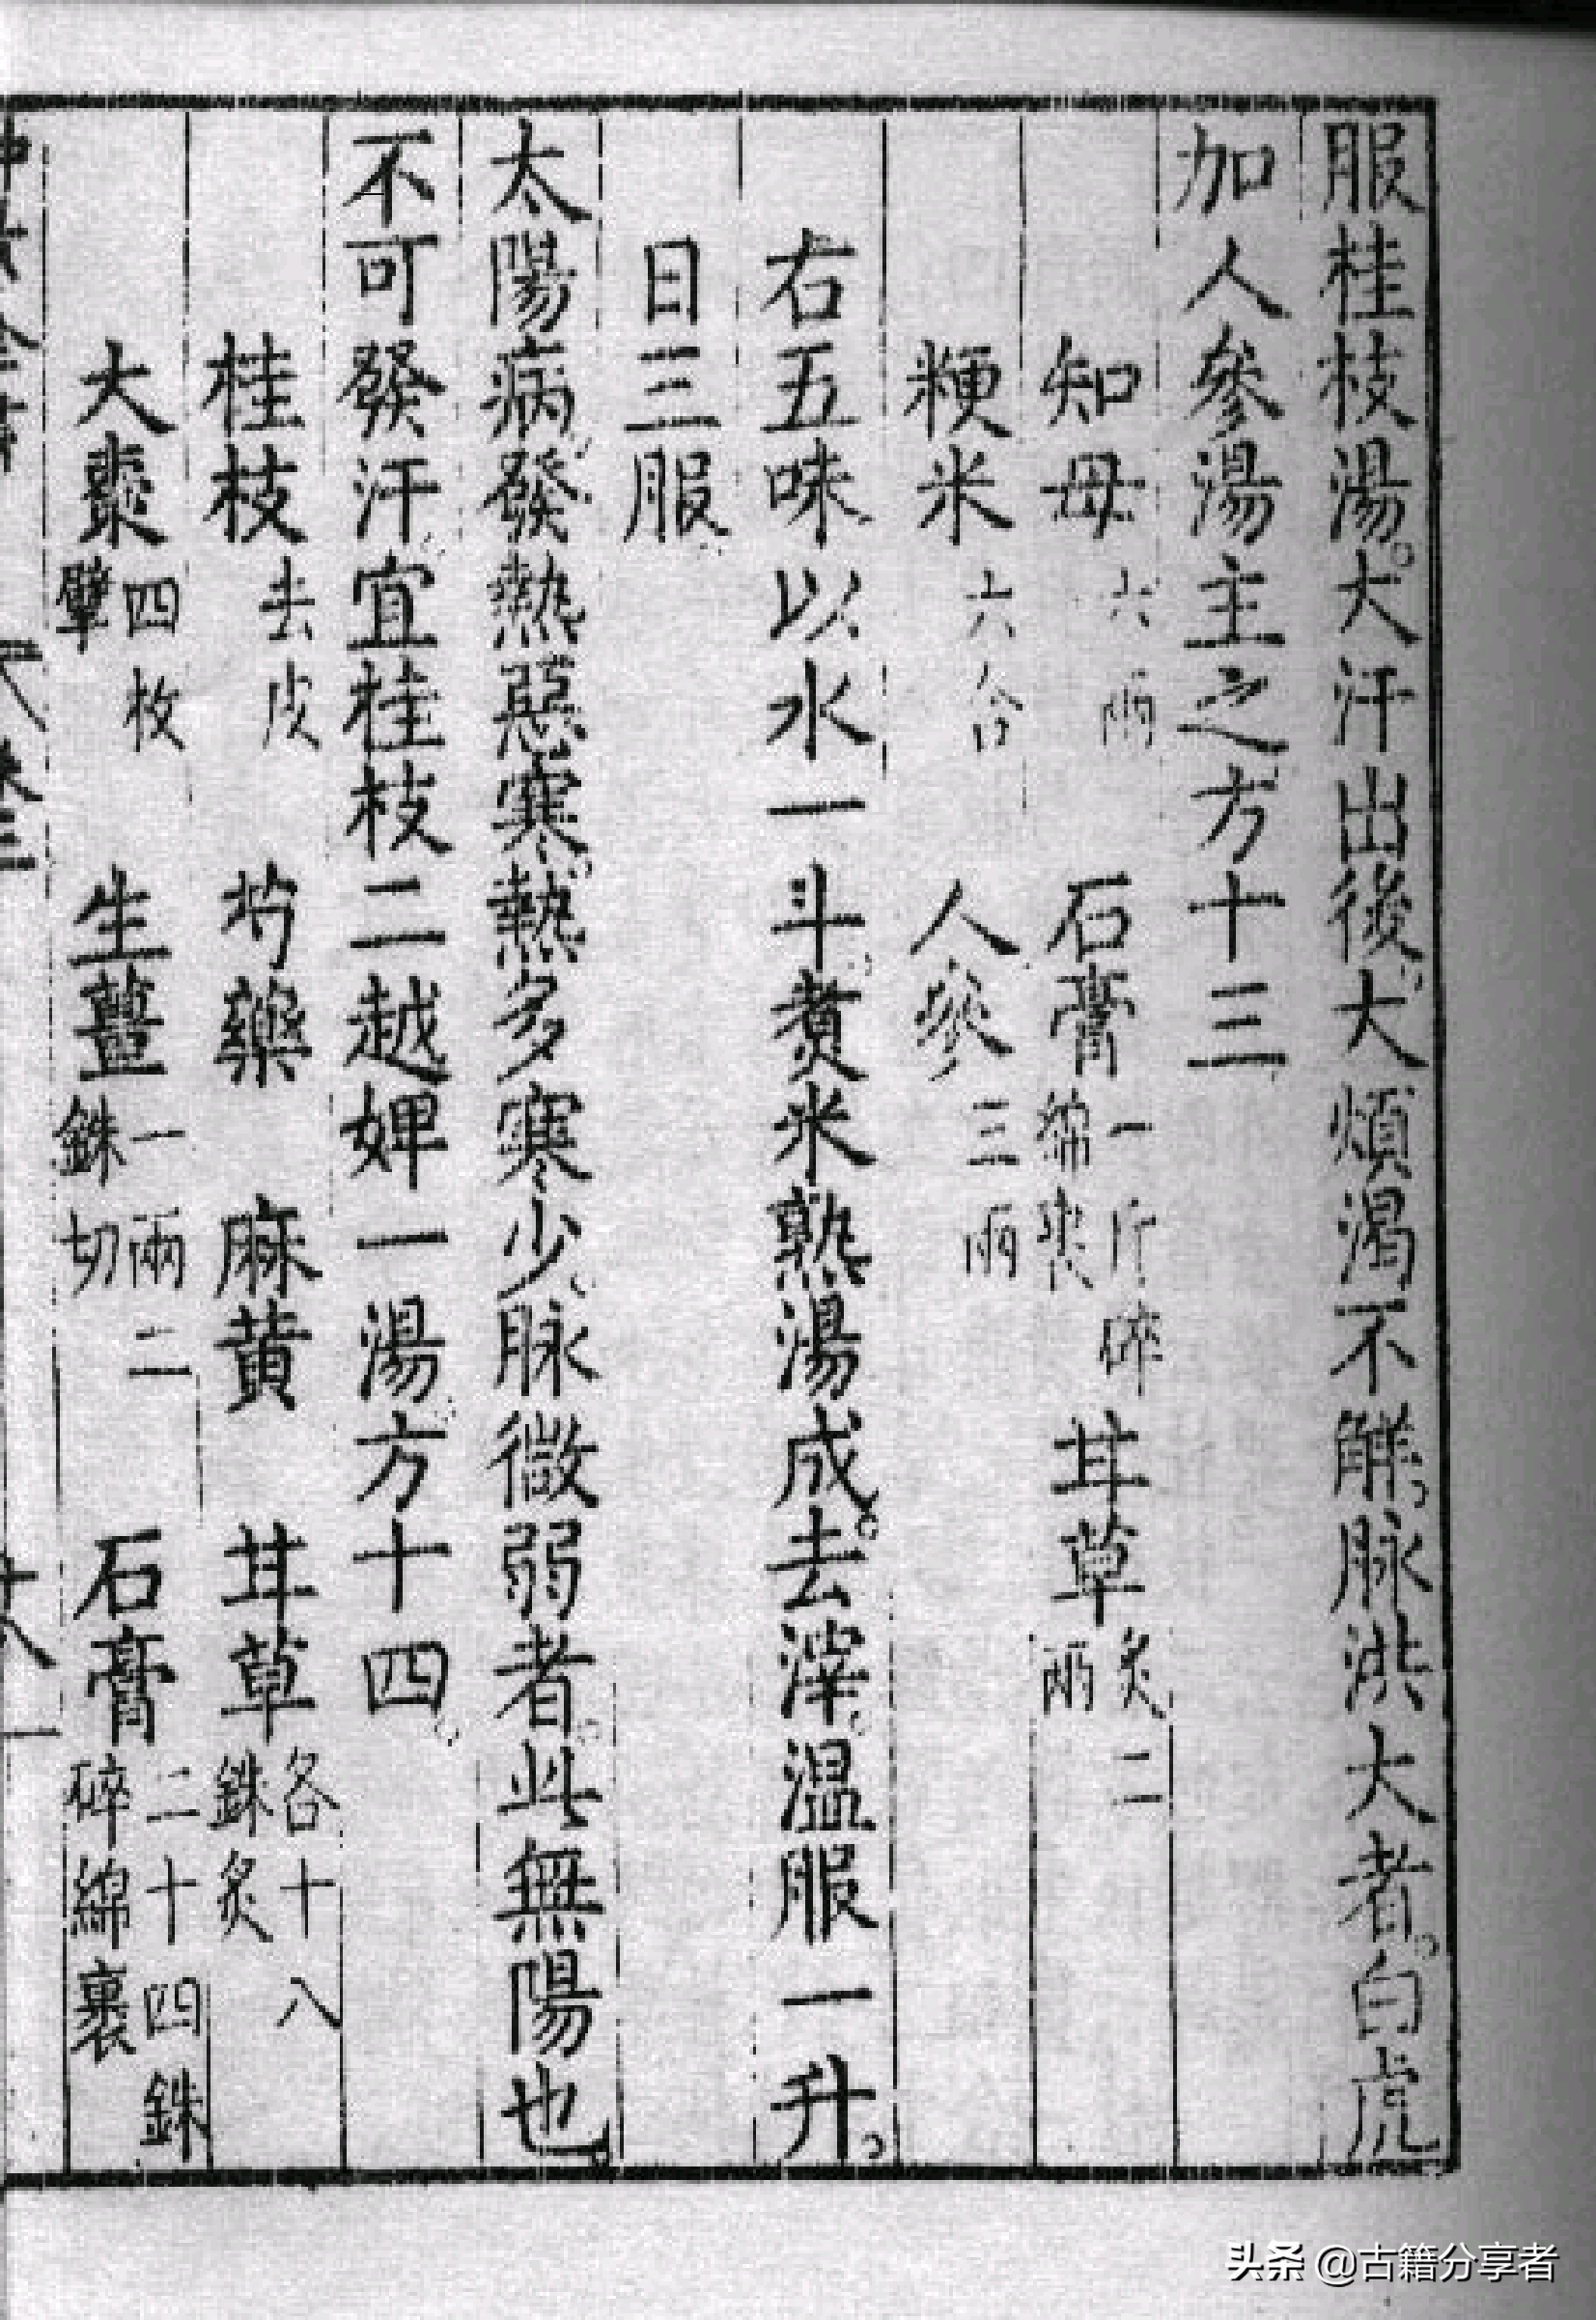 服桂枝湯大汗出後大煩渴不解脉洪大者白虎
加人參湯主之方十三
知母六兩 石膏一斤碎綿裹 甘草炙二兩
粳米六合 人參三兩
右五味以水一斗煑米熟湯成去滓溫服一升
日三服
太陽病發熱惡寒熱多寒少脉微弱者此無陽也
不可發汗宜桂枝二越婢一湯方十四
桂枝去皮 芍藥 麻黃 甘草各十八銖炙
大棗四枚擘 生薑一兩二銖切 石膏二十四銖碎綿裹
卷三
头条 @古籍分享者